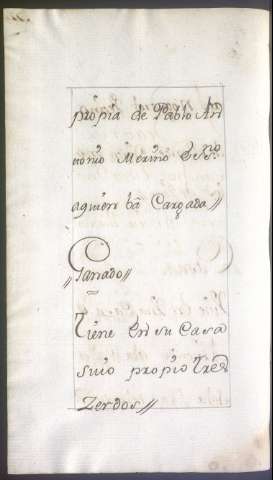 propia de Pablo An
tonio Merino Essno
aquien bā Cargada//
Ganado//
tiene En su Casa
suio propio tres
Zerdos//